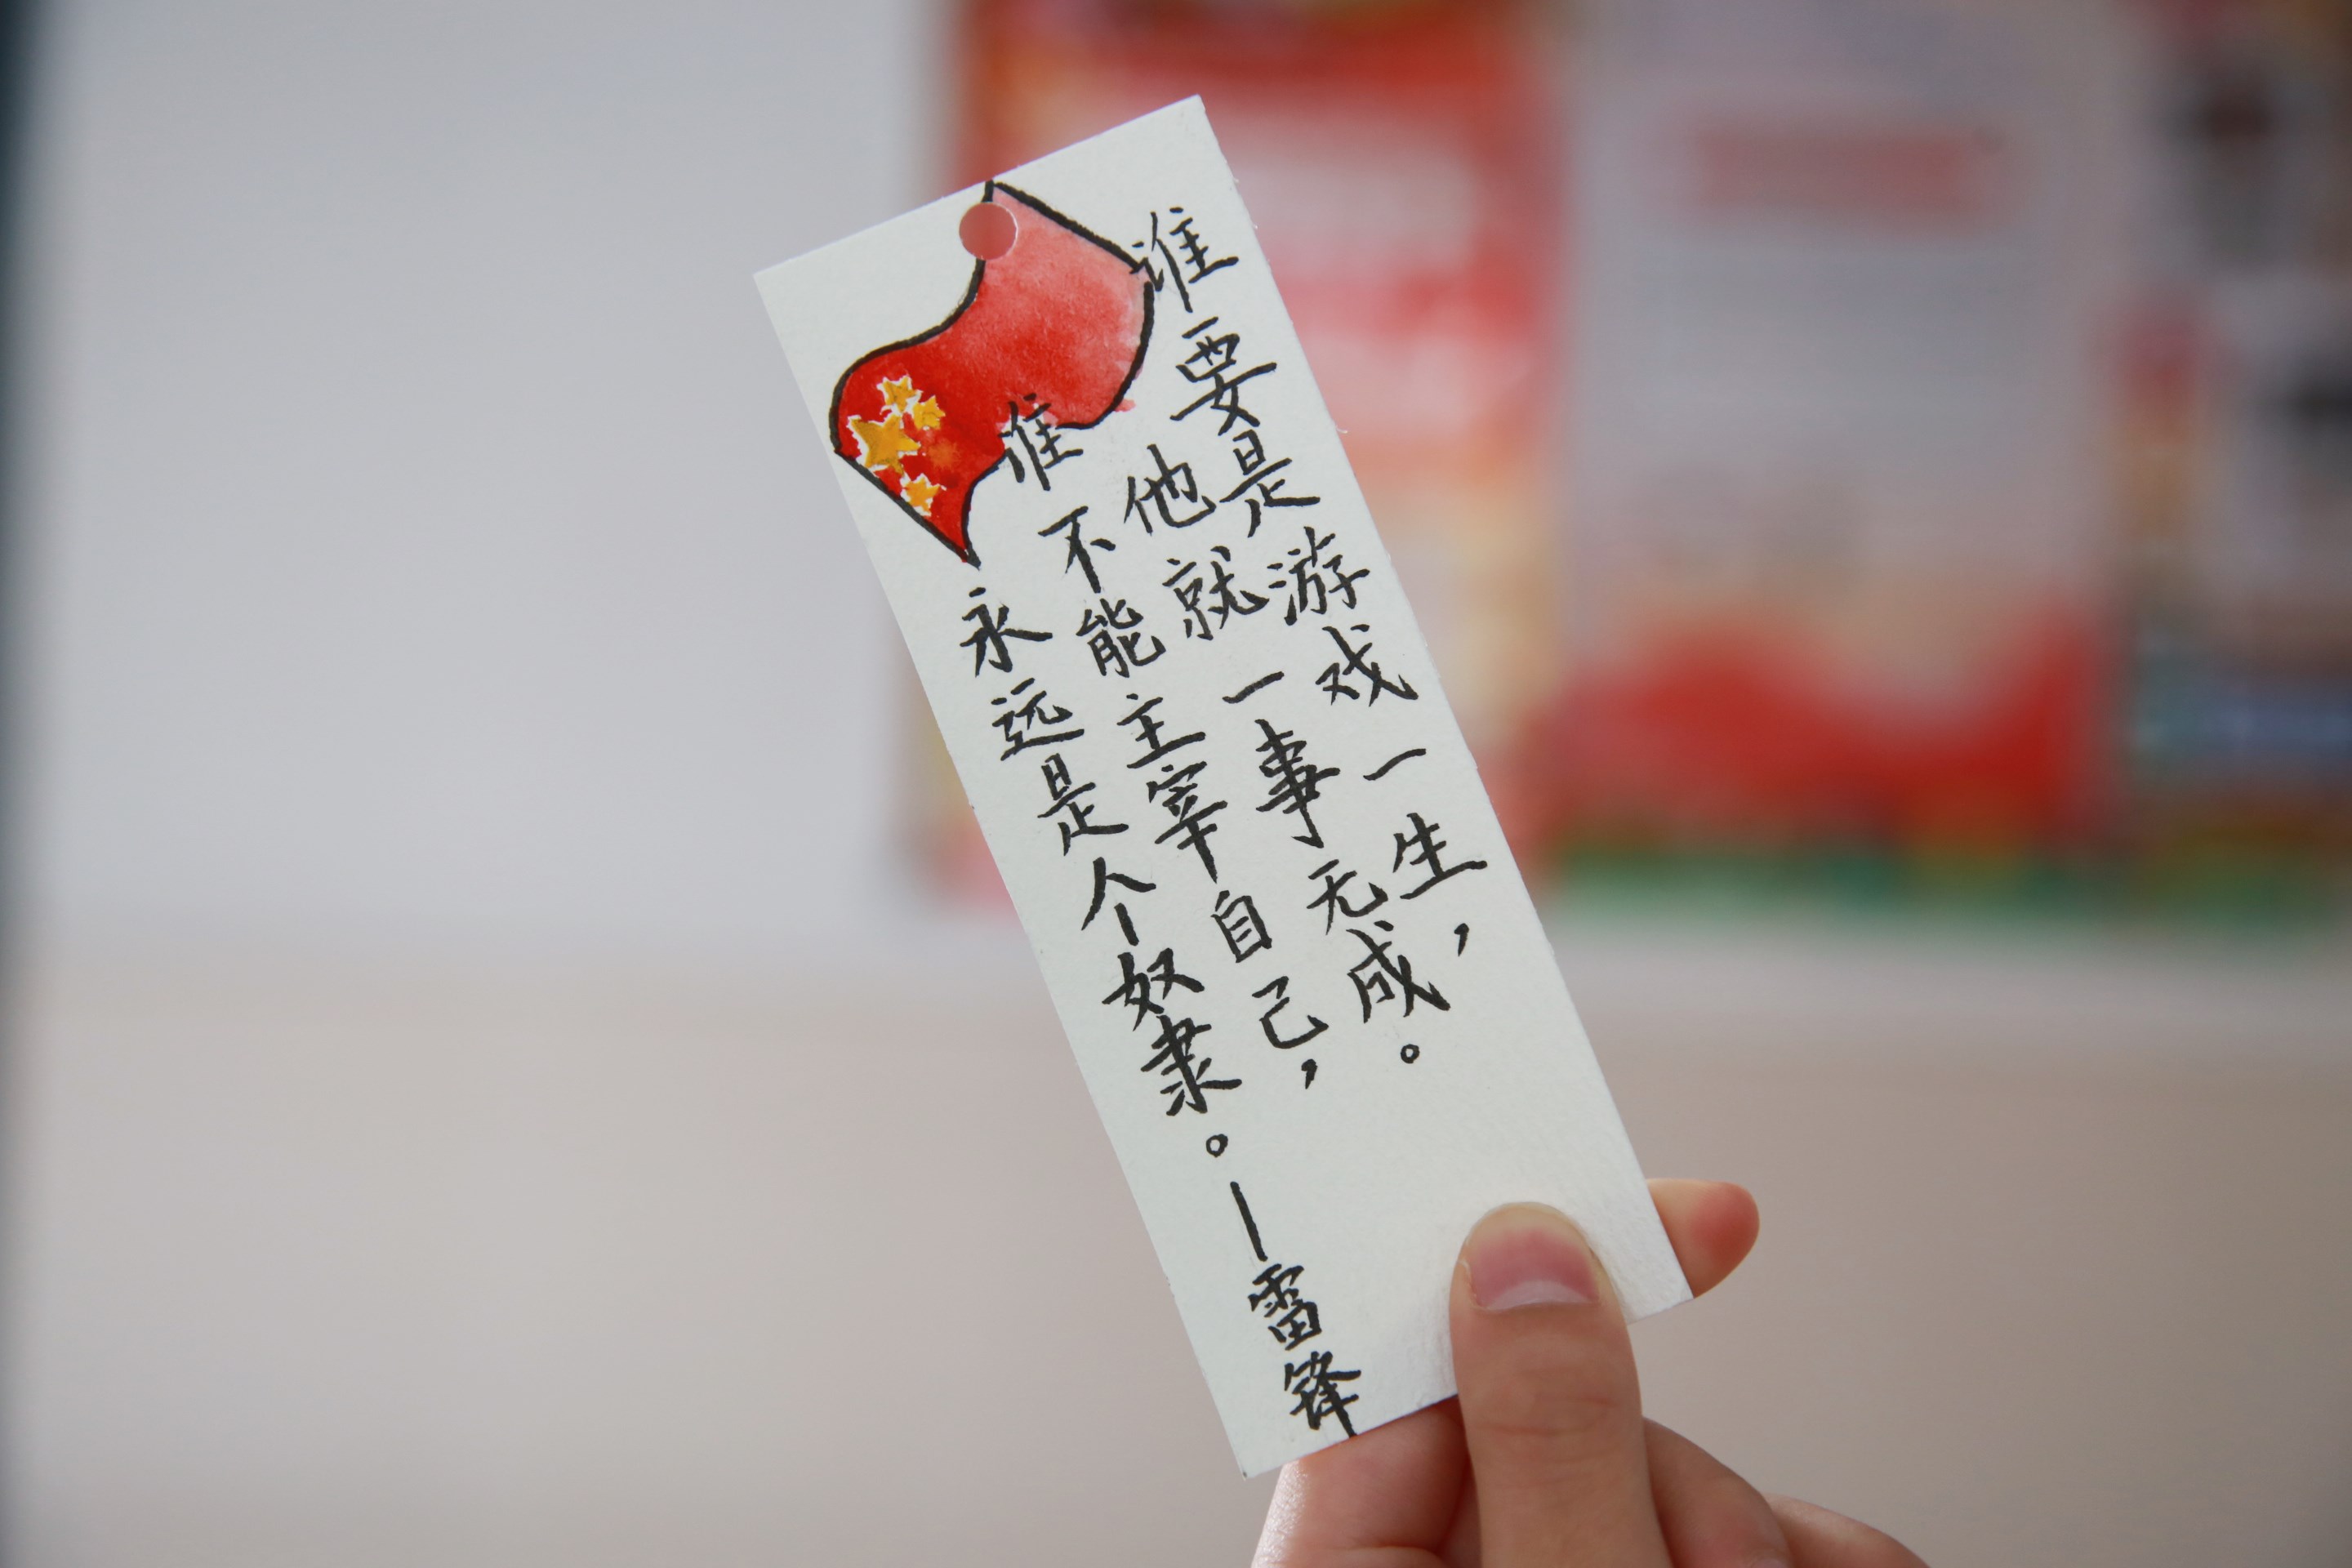 谁要是游戏一生，
他就一事无成。
谁不能主宰自己，
永远是个奴隶。—雷锋